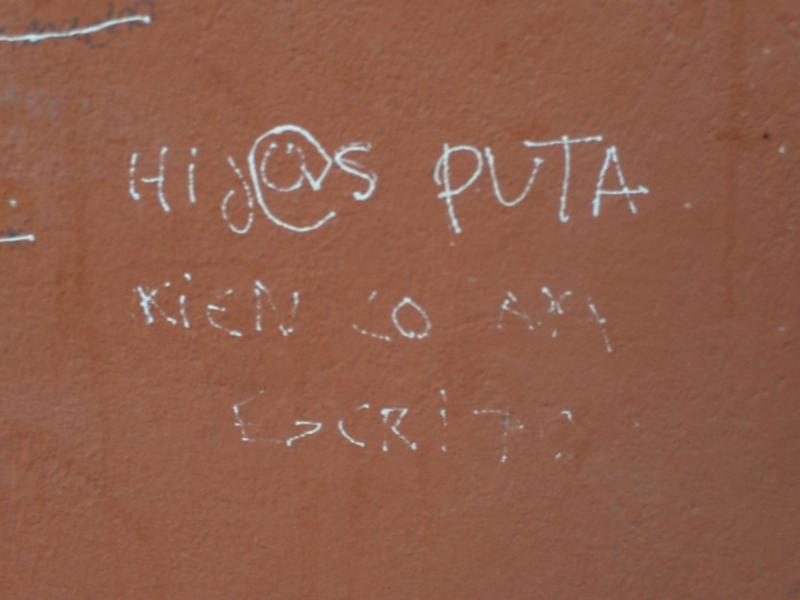 Hij@s PUTA
KIEN LO AYA
ESCRITO